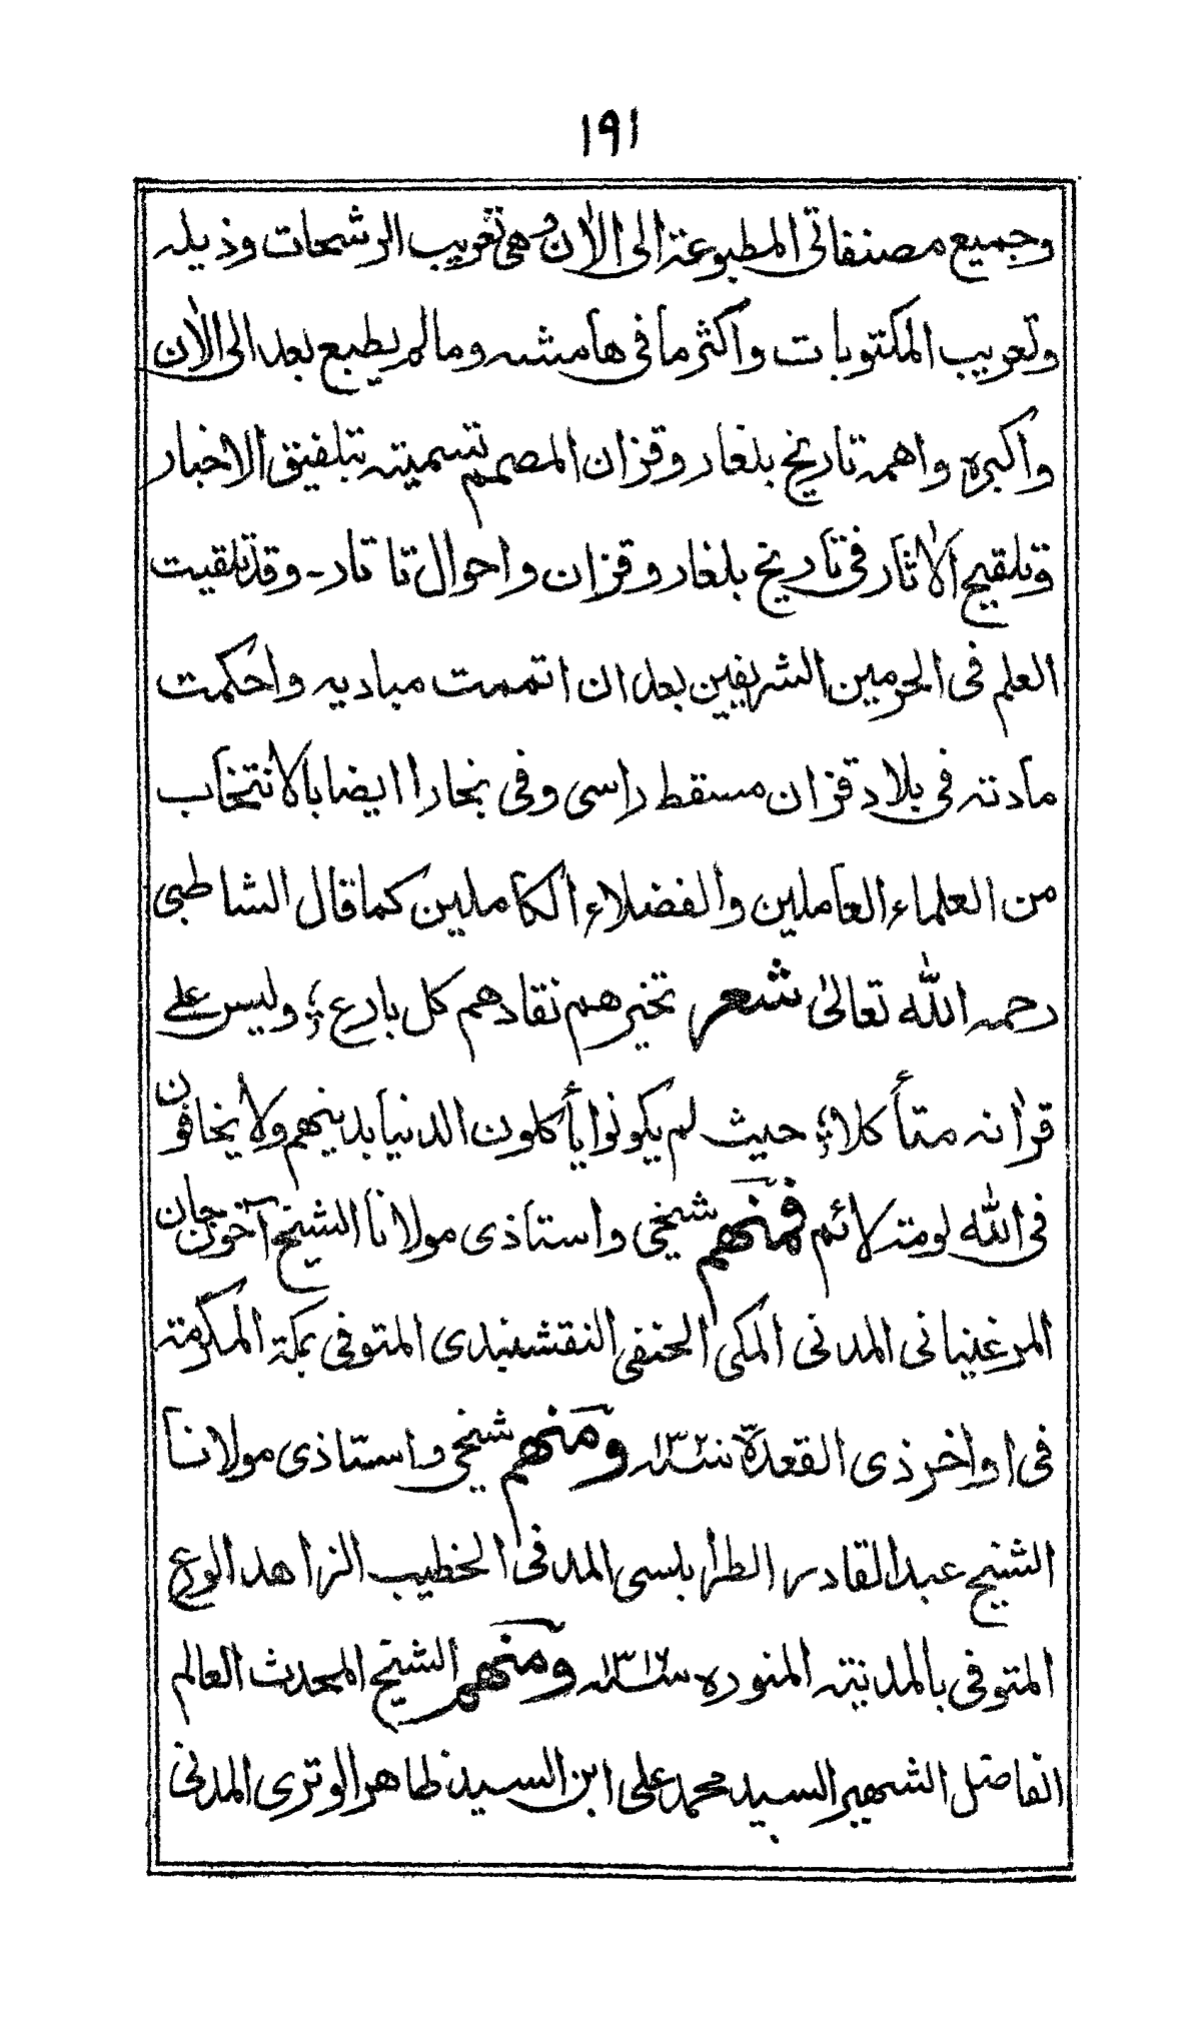 ١٩١
وجميع مصنفاتى المطبوعة الى الاٰن وهى تعريب الرشحات وذيله
وتعريب المكتوبات واكثر ما فى هامشه وما لم يطبع بعد الى الاٰن
واكبره واهمه تاريخ بلغار وقزان المصمم تسميته بتلفيق الاخبار
وتلقيح الاٰثار فى تاريخ بلغار وقزان واحوال تاتار ـ وقد تلقيت
العلم فى الحرمين الشريفين بعد ان اتممت مباديه واحكمت
مادته فى بلاد قزان مسقط راسى وفى بخارا ايضا بالانتخاب
من العلماء العاملين والفضلاء الكاملين كما قال الشاطبى
رحمه الله تعالىٰ شعر تخيرهم نقادهم كل بارع ؛ وليس على
قراٰنه متأكلا ؛ حيث لم يكونوا يأكلون الدنيا بدينهم ولا يخافون
فى الله لومة لائم فمنهم شيخى واستاذى مولانا الشيخ آخون جان
المرغنيانى المدنى المكى الحنفى النقشبندى المتوفى بمكة المكرمة
فى اواخر ذى القعدة سنة ١٣٢٠ ومنهم شيخى واستاذى مولانا
الشيخ عبد القادر الطرابلسى المدنى الخطيب الزاهد الورع
المتوفى بالمدينة المنوره سنة ١٣١٦ ومنهم الشيخ المحدث العالم
الفاضل الشهير السيد محمد على ابن السيد ظاهر الوترى المدنى